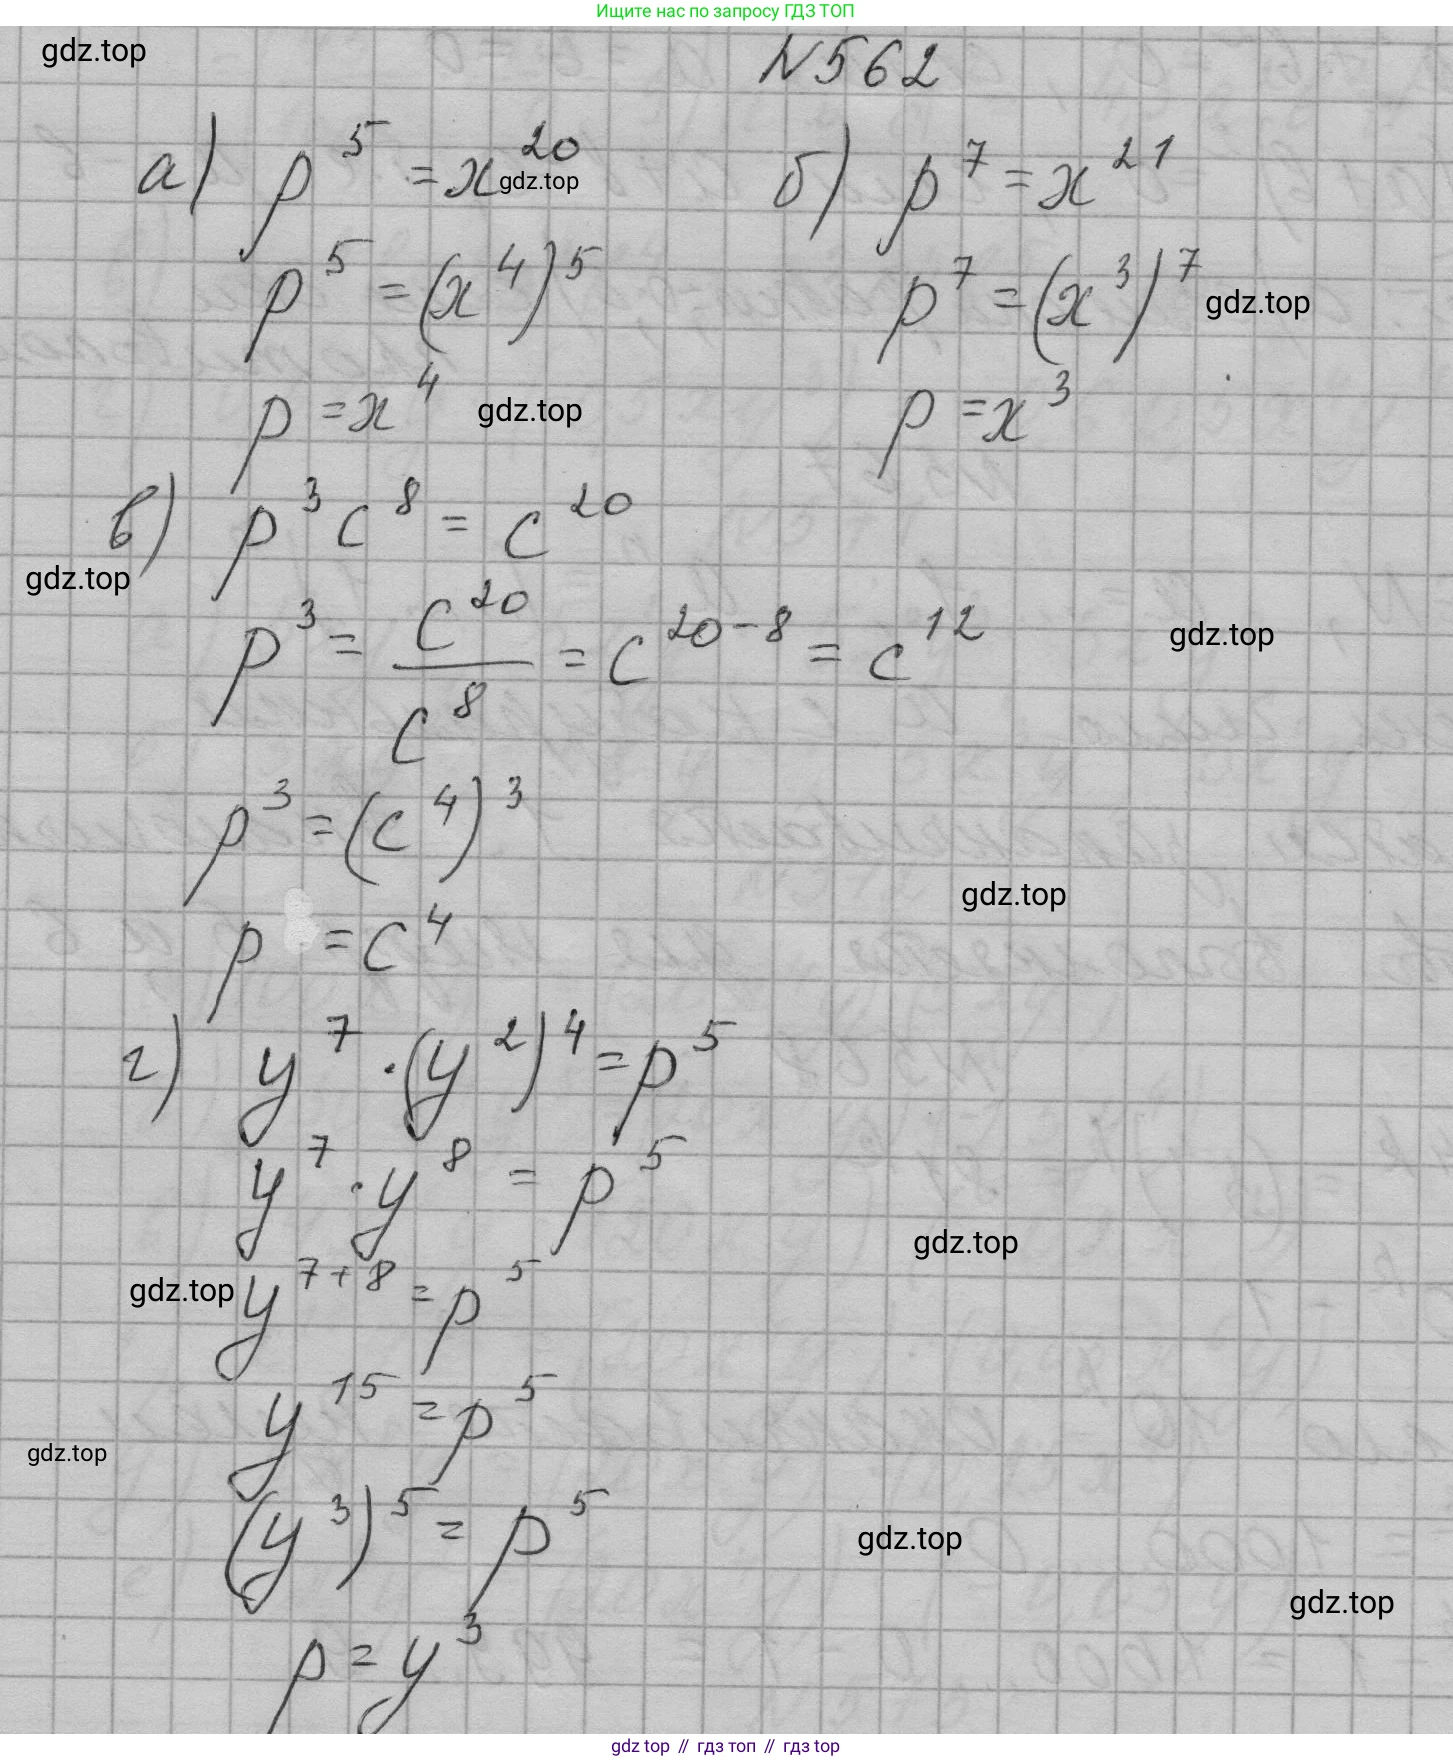 Ищите нас по запросу ГДЗ ТОП
gdz.top
N562
а) p^5 = x^20
gdz.top
p^5 = (x^4)^5
p = x^4
gdz.top
б) p^7 = x^21
p^7 = (x^3)^7
gdz.top
p = x^3
в) p^3 c^8 = c^20
gdz.top
p^3 = c^20/c^8 = c^20-8 = c^12
gdz.top
p^3 = (c^4)^3
gdz.top
p = c^4
г) y^7 · (y^2)^4 = p^5
y^7 · y^8 = p^5
gdz.top
gdz.top
y^7+8 = p^5
y^15 = p^5
gdz.top
(y^3)^5 = p^5
gdz.top
gdz.top
p = y^3
gdz top // гдз топ // гдз top